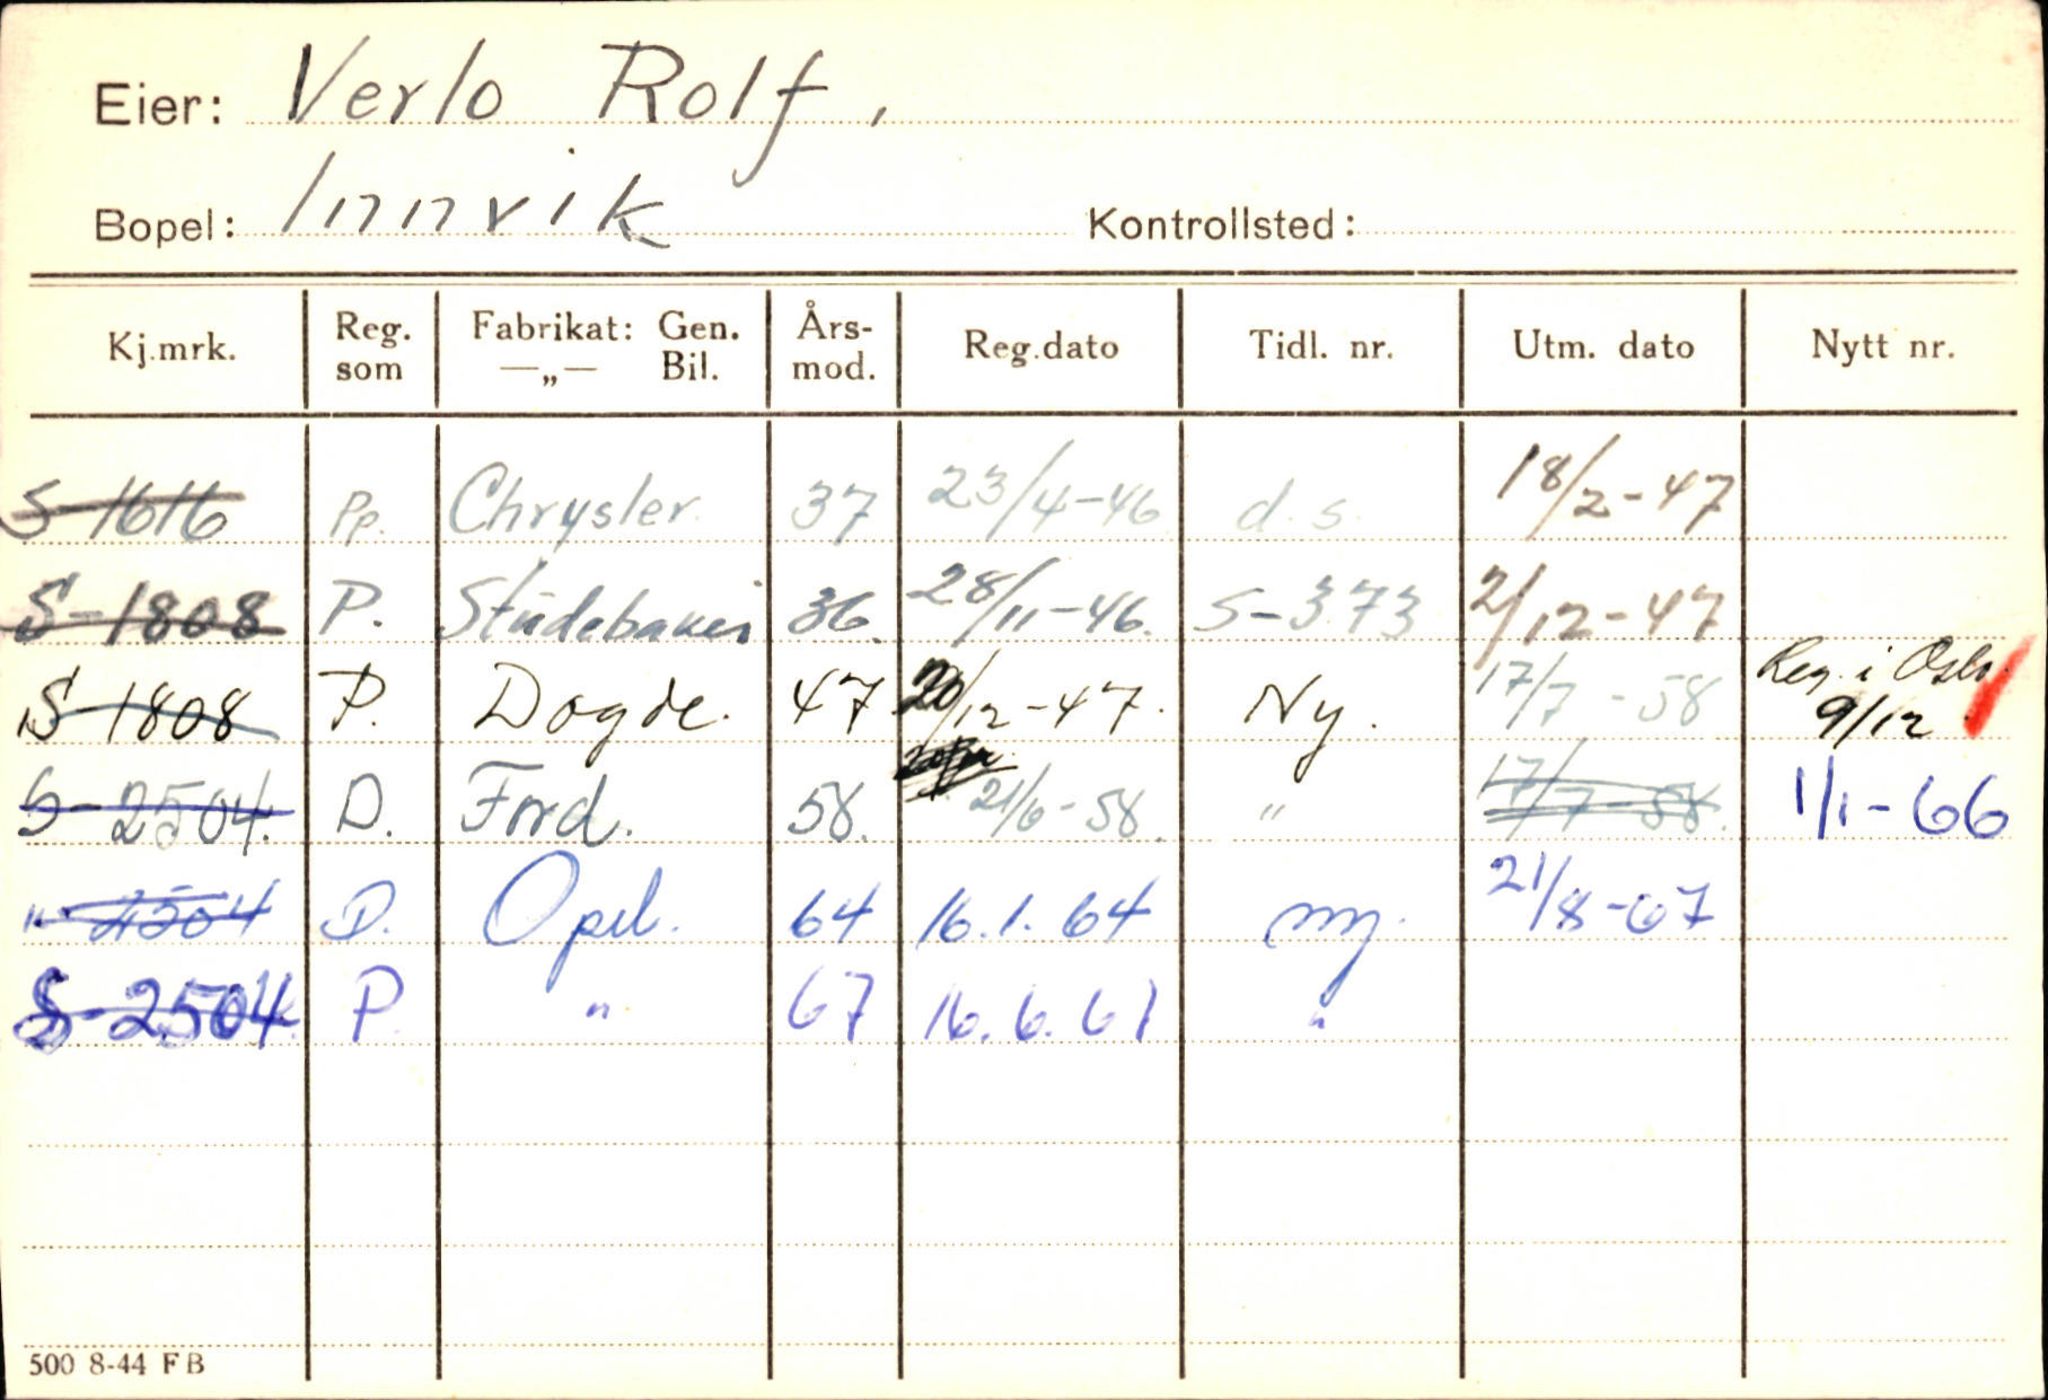 Eier: Verlo Rolf,
Bopel: Innvik Kontrollsted:
Kj.mrk. Reg. som Fabrikat: Gen. —„— Bil. Års-mod. Reg.dato Tidl. nr. Utm. dato Nytt nr.
S-1616 Pp. Chrysler. 37 23/4-46 d.s. 18/2-47
S-1808 P. Studebaker 36. 28/11-46. S-373 2/12-47
S-1808 P. Dogde. 47 20/12-47. Ny. 17/7-58 Reg. i Oslo. 9/12
S-2504. D. Ford. 58. 21/6-58. " 17/7-58. 1/1-66
" 2504 D. Opel. 64 16.1.64 ny. 21/8-67
S-2504. P " 67 16.6.67 "
500 8-44 F B